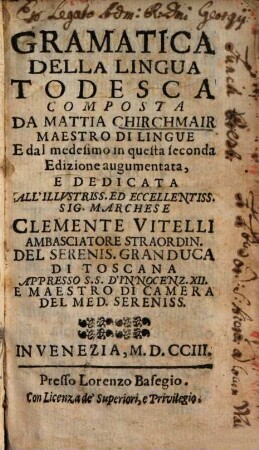 Ex Legato Adm: Rndi Georgy
GRAMATICA
DELLA LINGUA
TODESCA
COMPOSTA
DA MATTIA CHIRCHMAIR
MAESTRO DI LINGUE
E dal medesimo in questa seconda
Edizione augumentata,
E DEDICATA
ALL'ILLVSTRISS. ED ECCELLENTISS.
SIG. MARCHESE
CLEMENTE VITELLI
AMBASCIATORE STRAORDIN.
DEL SERENIS. GRANDUCA
DI TOSCANA
APPRESSO S.S. D'INNOCENZ. XII.
E MAESTRO DI CAMERA
DEL MED. SERENISS.
IN VENEZIA, M. D. CCIII.
Presso Lorenzo Basegio.
Con Licenza de' Superiori, e Privilegio.